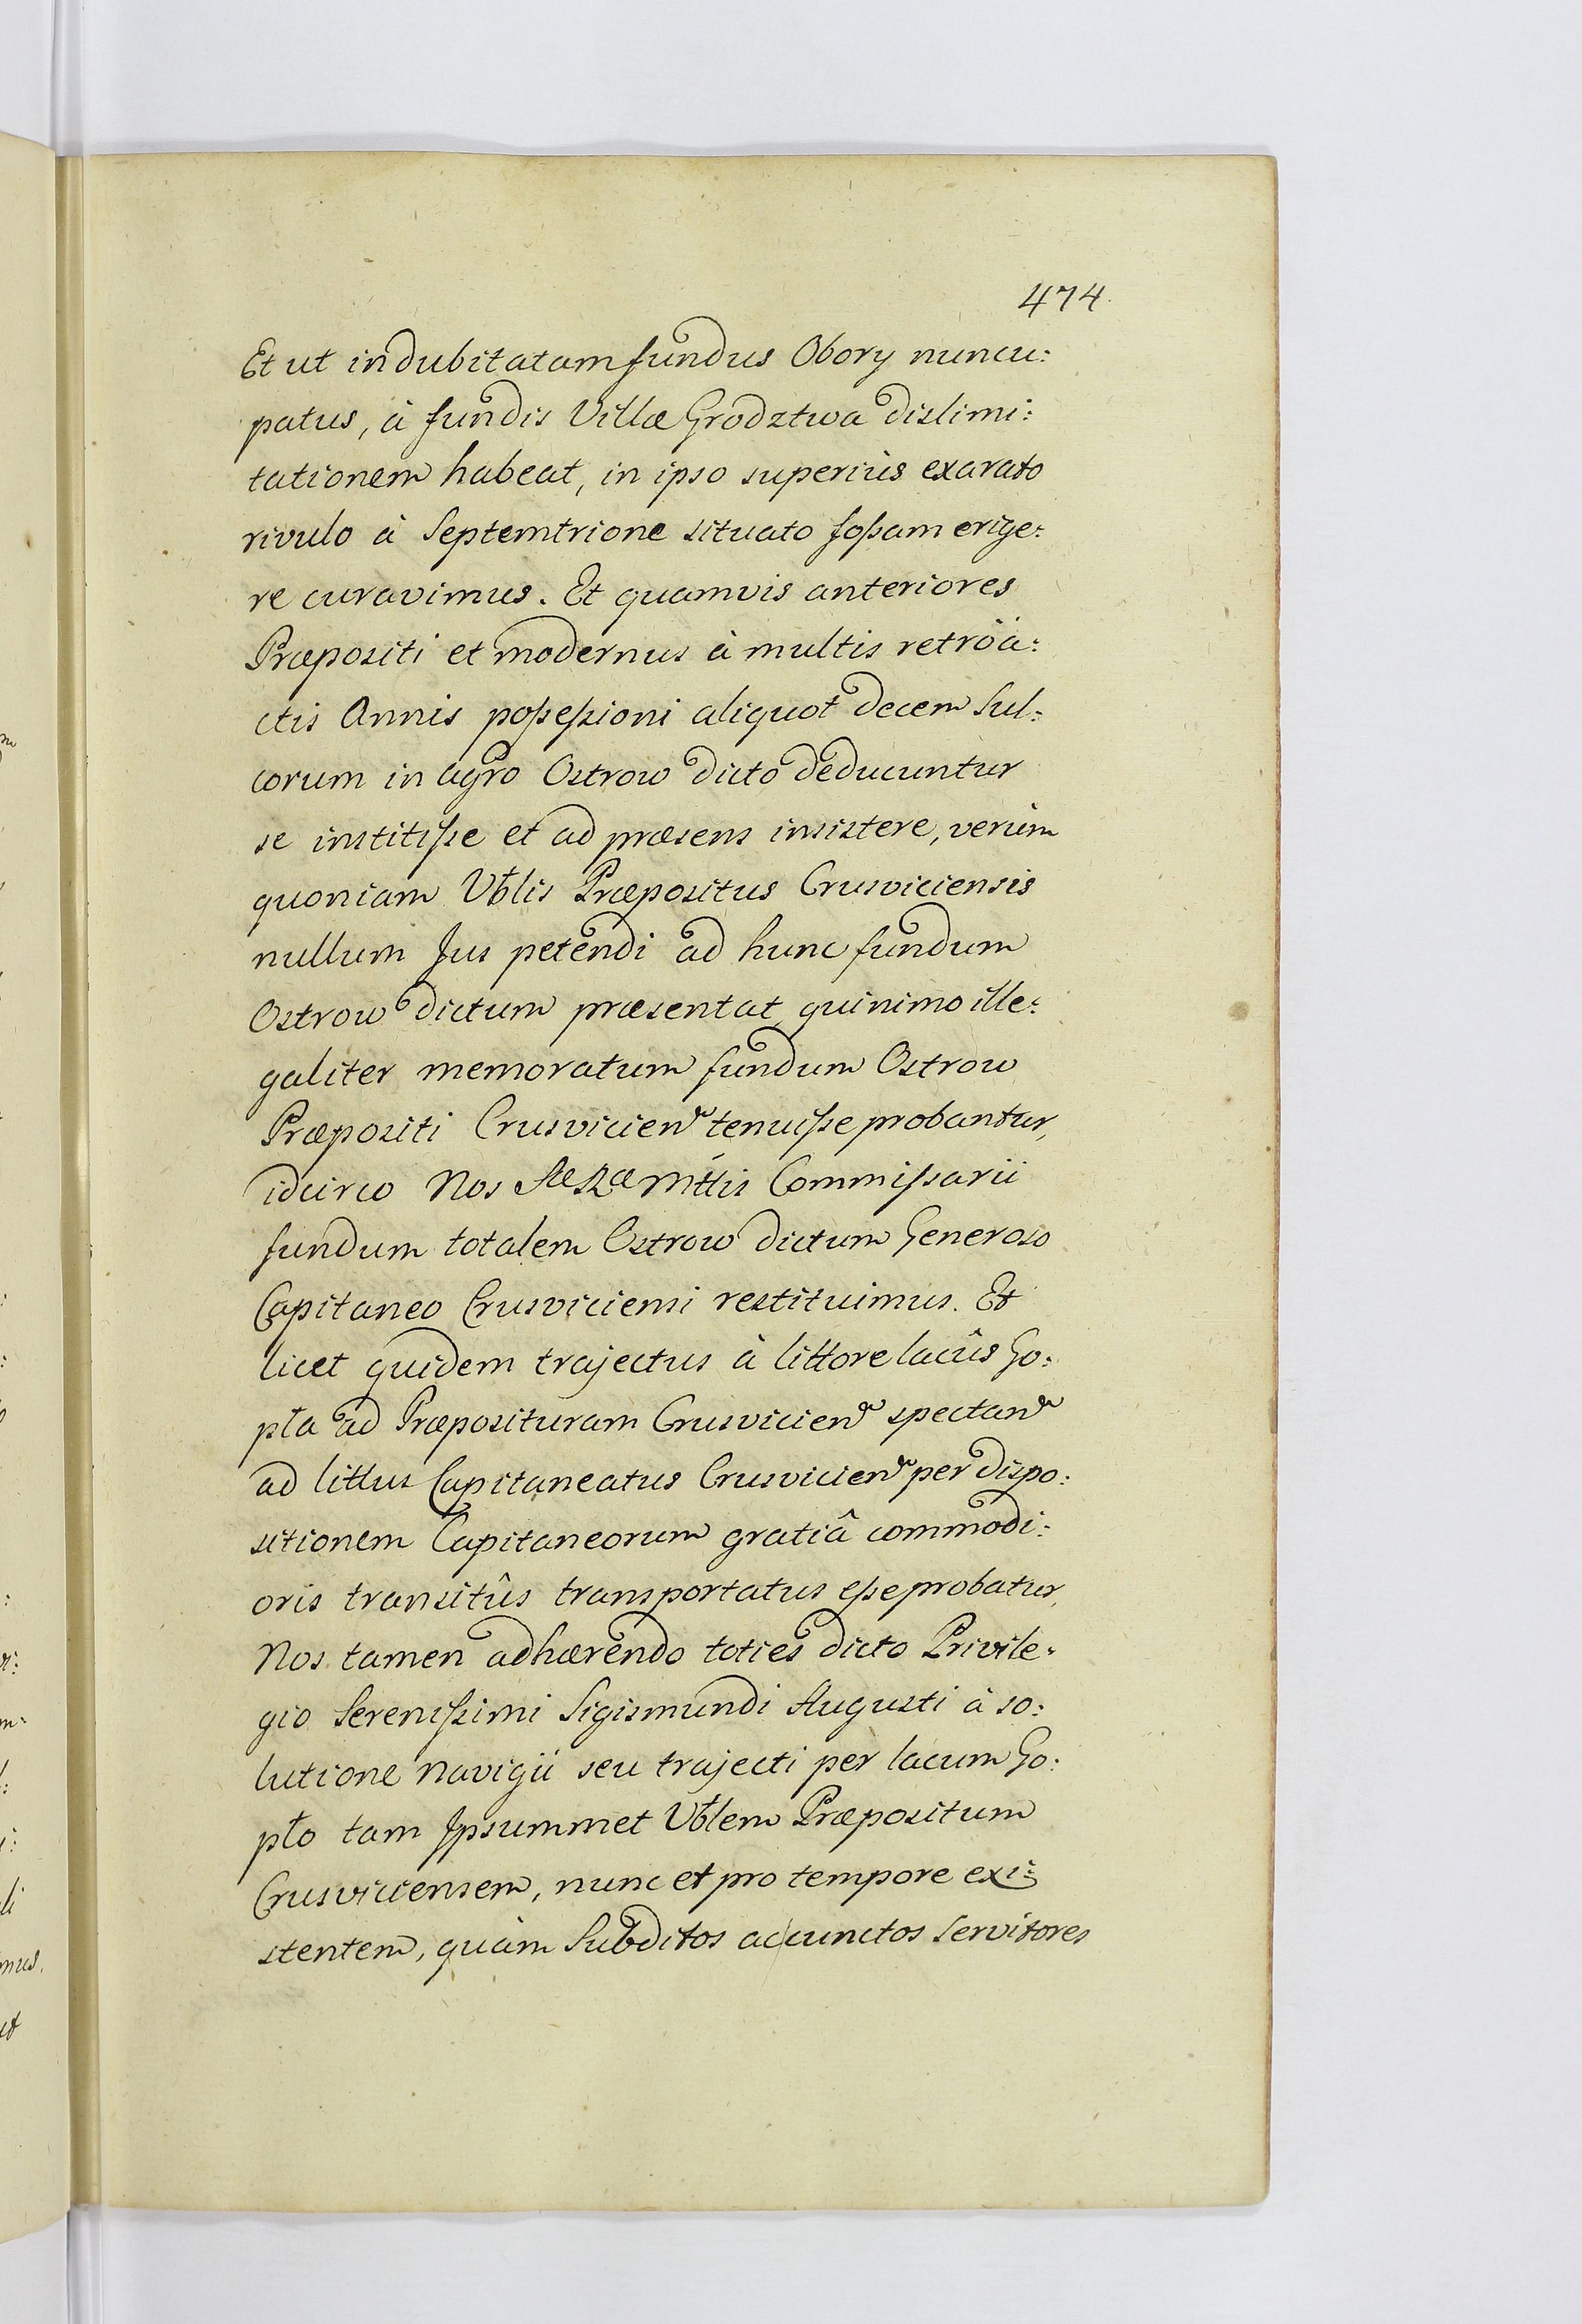 474.
Et ut indubitatam fundus Obory nuncu:
patus, à fundis Villæ Grodztwa dislimi:
tationem habeat, in ipso superiùs exarato
rivulo à Septemtrione situato foßam erige:
re curavimus. Et quamvis anteriores
Præpositi et modernus à multis retröa:
ctis Annis poßeßioni aliquot decem Sul:
corum in agro Ostrow dicto deducuntur
se institiße et ad præsens insistere, verùm
quoniam Vblis Præpositus Crusviciensis
nullum Jus petendi ad hunc fundum
Ostrow dictum præsentat, quinimo ille:
galiter memoratum fundum Ostrow
Præpositi Crusvicien tenuiße probantur,
idcirco Nos Mttis Commißarii
fundum totalem Ostrow dictum Generoso
Capitaneo Crusviciensi restituimus. Et
licet quidem trajectus à littore lacûs Go:
pła ad Præposituram Crusvicien spectan
ad littus Capitaneatus Crusvicien per dispo:
sitionem Capitaneorum gratiâ commodi:
oris transitûs transportatus eße probatur,
Nos tamen adhærendo toties dicto Privile:
gio Serenißimi Sigismundi Augusti à so:
lutione navigii seu trajecti per lacum Go:
pło tam Ipsummet Vblem Præpositum
Crusviciensem, nunc et pro tempore exi:
stentem, quàm Subditos ac cunctos Servitores